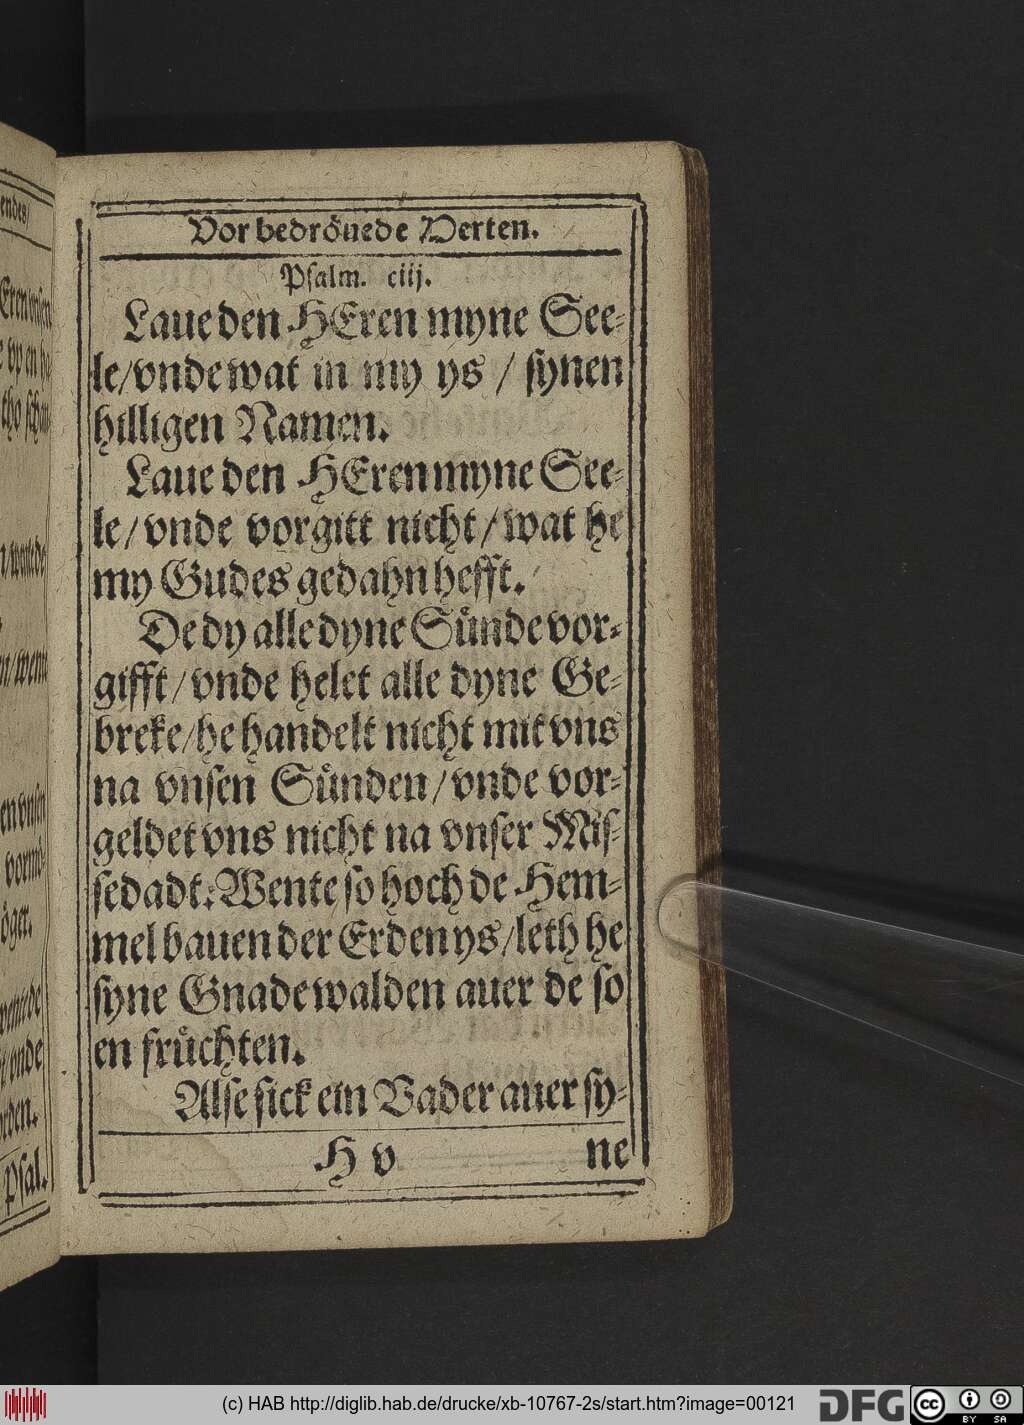 endes/
Vor bedrönede Herten.
Psalm. ciij.
Laue den HEren myne See-
le/vnde wat in my ys / synen
hilligen Namen.
Laue den HEren myne See-
le/vnde vorgitt nicht/wat he
my Gudes gedahn hefft.
De dy alle dyne Sünde vor-
gifft/vnde helet alle dyne Ge-
breke/he handelt nicht mit vns
na vnsen Sünden/vnde vor-
geldet vns nicht na vnser Mis-
sedadt: Wente so hoch de Hem-
mel bauen der Erden ys/leth he
syne Gnade walden auer de so
en früchten.
Alse sick ein Vader auer sy-
H v ne
Psal.
(c) HAB http://diglib.hab.de/drucke/xb-10767-2s/start.htm?image=00121
DFG
cc BY SA